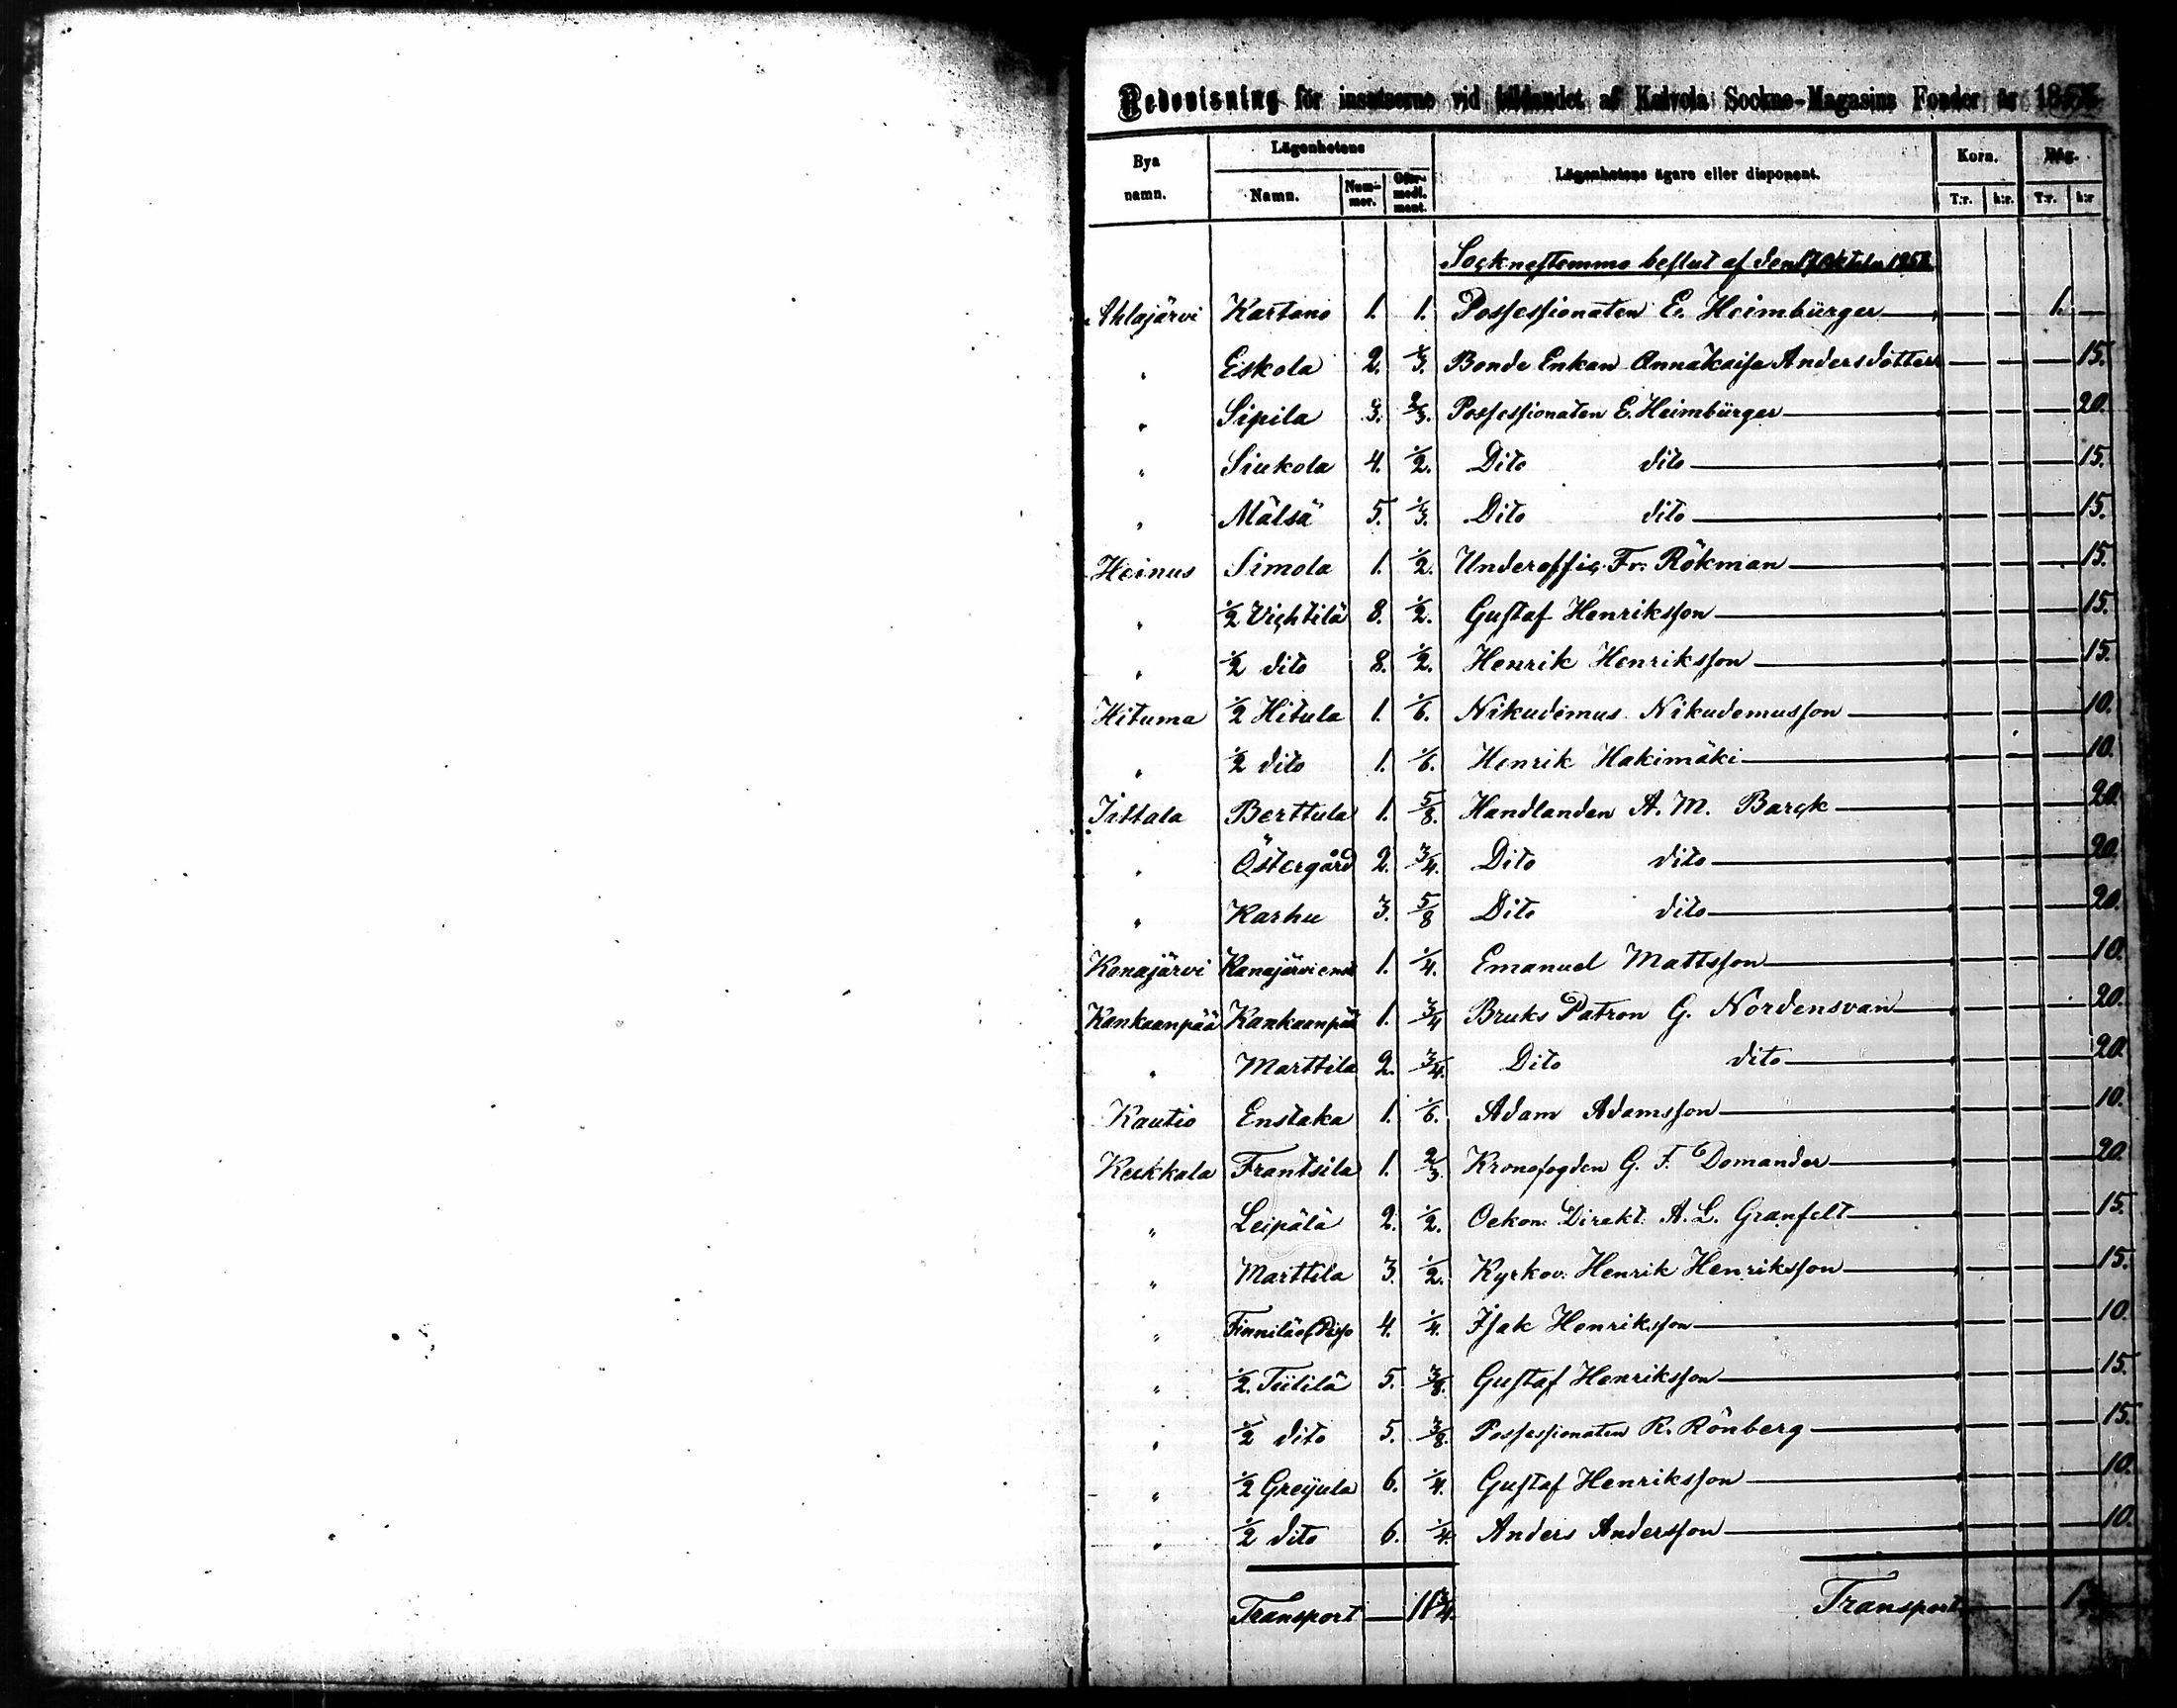 Redovisning för insatserne vid bildandet af Kalvola Sockne-Magasins Fonder år 185
Bya namn. Lägenhetens Namn. Num-mer. Öfver-medl. mont. Lägenhetens ägare eller disponent. Korn. T:r. k:r. Råg. T:r. k:r
Socknestemmo beslut af den Oktober 185
Ahlajärvi Kartano 1. 1. Possessionaten E. Heimbürger — — — 1. —
" Eskola 2. 1/3. Bonde Enkan Annakaisa Andersdotter — — — 15.
" Sipila 3. 2/3. Possessionaten E. Heimbürger — — — 20.
" Siukola 4. 1/2. Dito dito — — — 15.
" Mälsä 5. 1/3. Dito dito — — — 15.
Heinus Simola 1. 1/2. Underoffic. Fr. Rökman — — — 15.
" 1/2 Vichtilä 8. 1/2. Gustaf Henriksson — — — 15.
" 1/2 dito 8. 1/2. Henrik Henriksson — — — 15.
Hituma 1/2 Hitula 1. 1/6. Nikudemus Nikudemusson — — — 10.
" 1/2 dito 1. 1/6. Henrik Hakimäki — — — 10.
Iittala Berttula 1. 5/8. Handlanden A. M. Barck — — — 20.
" Östergård 2. 3/4. Dito dito — — — 20.
" Karhu 3. 5/8 Dito dito — — — 20.
Kanajärvi Kanajärvi enst 1. 1/4. Emanuel Mattsson — — — 10.
Kankaanpää Kankaanpää 1. 3/4 Bruks Patron G. Nordensvan — — — 20.
" Marttila 2. 3/4. Dito dito — — — 20.
Kautio Enstaka 1. 1/6. Adam Adamsson — — — 10.
Keikkala Frantsila 1. 2/3. Kronofogden G. F. Domander — — — 20.
" Leipälä 2. 1/2. Oekon. Direkt. A. L. Granfelt — — — 15.
" Marttila 3. 1/2. Kyrkov. Henrik Henriksson — — — 15.
" Finnilä 4. 1/4. Isak Henriksson — — — 10.
" 1/2 Tiitilä 5. 3/8. Gustaf Henriksson — — — 15.
" 1/2 dito 5. 3/8. Possessionaten R. Rönberg — — — 15.
" 1/2 Greijula 6. 1/4. Gustaf Henriksson — — — 10.
" 1/2 dito 6. 1/4. Anders Andersson — — — 10.
Transport — 11 3/4. Transport — —